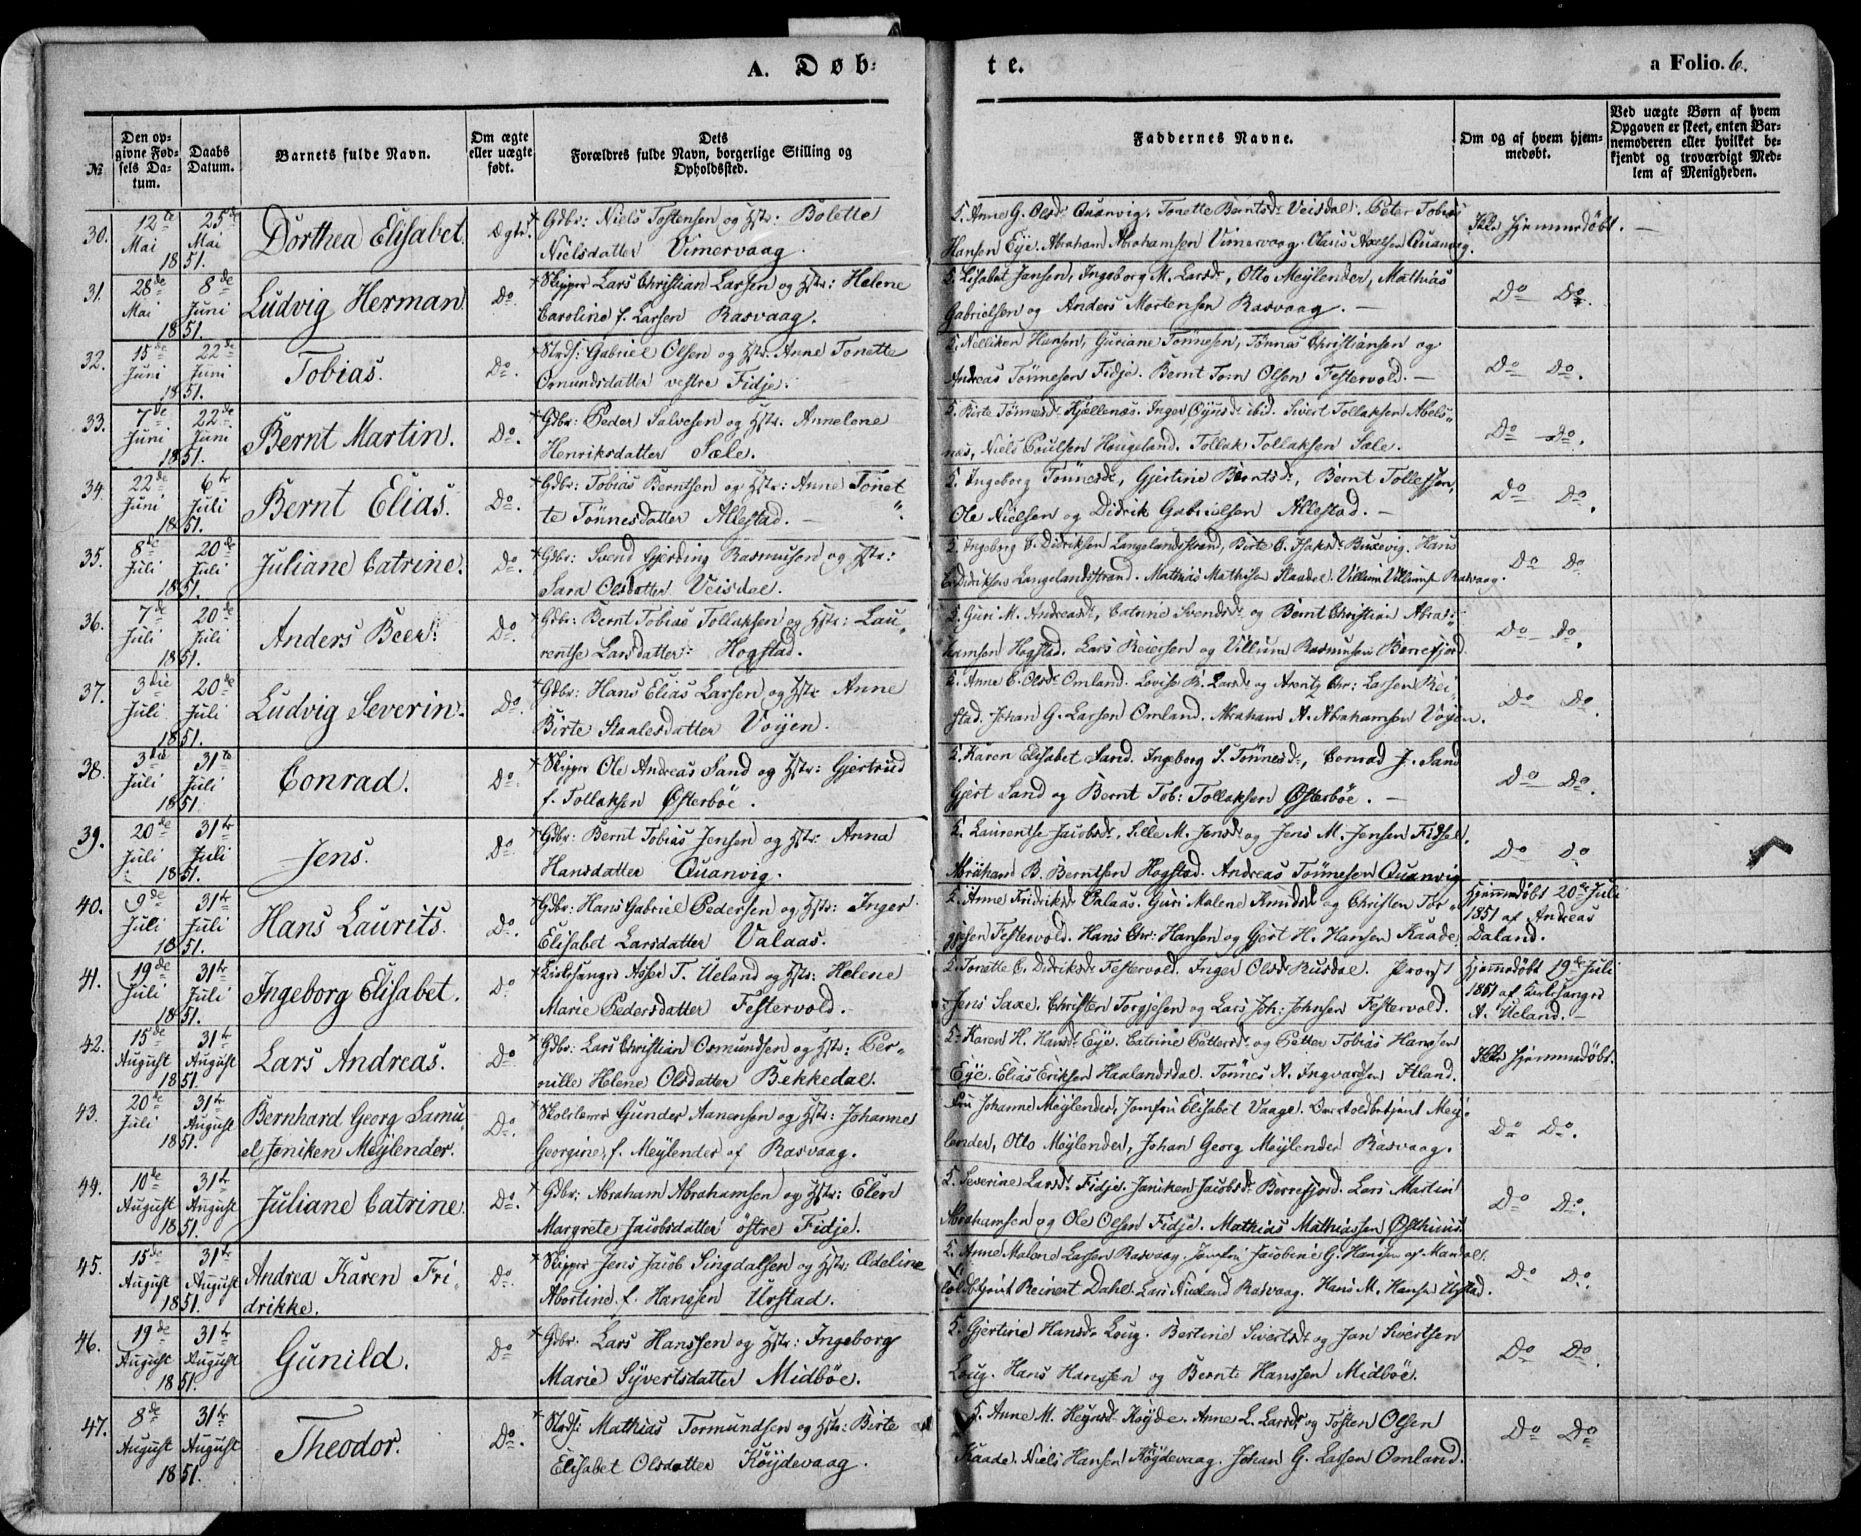 A. Døb=
te.
a Folio. 6.
No
Den op=
givne Fød=
sels Da=
tum.
Daabs
Datum.
Barnets fulde Navn.
Om ægte
eller uægte
født.
Dets
Forældres fulde Navn, borgerlige Stilling og
Opholdssted.
Faddernes Navne.
Om og af hvem hjem=
medøbt.
Ved uægte Børn af hvem
Opgaven er skeet, enten Bar=
nemoderen eller hvilket be=
kjendt og troværdigt Med=
lem af Menigheden.
30. 12te Mai 1851. 25de Mai Dorthea Elisabet. Ægte. Gdbr: Niels Tostensen og Hstr: Bolette
Nielsdatter Vimervaag.
5. Anne G. Olsdr Quanvig, Tonette Berntsdr Veisdal. Peter Tobias
Hansen Eye. Abraham Abrahamsen Vimervaag. Olaus Axelsen Quanvig.
Ikke hjemmedøbt. —
31. 28de Mai 1851. 8de Juni Ludvig Herman Do. Skipper Lars Christian Larsen og Hstr: Helene
Caroline f. Larsen Rasvaag.
5. Lisabet Jansen, Ingeborg M. Larsdr, Otto Meylender, Mathias
Gabrielsen og Anders Mortensen Rasvaag. —
Do Do.
32. 15de Juni 1851. 22de Juni Tobias. Do. Strds: Gabriel Olsen og Hstr: Anne Tonette
Omundsdatter vestre Fidje.
5. Nelliken Hansen, Guriane Tønnesen, Tønnas Christiansen og
Andreas Tønnesen Fidje. Bernt Torn Olsen Festervold. —
Do Do.
33. 7de Juni 1851. 22de Juni Bernt Martin. Do. Gdbr: Peder Salvesen og Hstr: Annelene
Henriksdatter Sæle.
5. Birte Tønnesdr Kjellenæs. Inger ibid. Sivert Tollaksen Abels=
næs, Niels Poulsen Hougeland. Tollak Tollaksen Sæle.
Do Do.
34. 22de Juni 1851. 6te Juli Bernt Elias. Do. Gdbr: Tobias Berntsen og Hstr: Anne Tonet
te Tønnesdatter Allestad. —
5. Ingeborg Tønnesdr, Gjertine Berntsdr, Bernt Tollefsen,
Ole Nielsen og Didrik Gabrielsen Allestad. —
Do Do.
35. 8de Juli 1851. 20de Juli Juliane Catrine. Do. Gdbr: Svend Gjerding Rasmussen og Hstr:
Sara Olsdatter Veisdal.
5. Ingeborg C. Didriksen Langelandsstrand, Birte C. Isaksdr Buxevig. Hans
Didriksen Langelandsstrand. Mathias Mathisen Raadel. Villum Villumsen Rasvaag.
Do Do
36. 7de Juli 1851. 20de Juli Anders Beer. Do. Gdbr: Bernt Tobias Tollaksen og Hstr: Lau=
rentse Larsdatter Hogstad.
5. Guri M. Andreasdr, Catrine Svendsdr og Bernt Christian Abra=
hamsen Hogstad. Lars Reiersen og Villum Rasmusen Berrefjord.
Do Do.
37. 3die Juli 1851. 20de Juli Ludvig Severin. Do. Gdbr: Hans Elias Larsen og Hstr Anne
Birte Staalesdatter Vøyen.
5. Anne C. Olsdr Omland. Lovise B. Larsdr og Arentz Chr: Larsen Rei=
stad. Johan G. Larsen Omland. Abraham A. Abrahamsen Vøyen.
Do Do.
38. 3die Juli 1851. 31te Juli Conrad. Do. Skipper Ole Andreas Sand og Hstr: Gjertrud
f. Tollaksen Østerbøe.
5. Karen Elisabet Sand. Ingeborg S. Tønnesdr, Conrad J. Sand
Gjert Sand og Bernt Tob: Tollaksen Østerbøe. —
Do Do.
39. 20de Juli 1851. 31te Juli Jens. Do. Gdbr: Bernt Tobias Jensen og Hstr: Anna
Hansdatter Quanvig.
5. Laurentse Jacobsdr, Sille M. Jensdr og Jens M. Jensen Fidsel.
Abraham B. Berntsen Hogstad. Andreas Tønnesen Quanvig
Do Do
40. 9de Juli 1851. 31te Juli Hans Laurits. Do. Gdbr: Hans Gabriel Pedersen og Hstr: Inger
Elisabet Larsdatter Valaas.
5. Anne Fridriksdr Valaas. Guri Malene Amundsdr og Christen Tor=
gjesen Festervold. Hans Chr: Hansen og Gjert H. Hansen Kaade.
Hjemmedøbt 20de Juli
1851 af Andreas
Daland.
41. 19de Juli 1851. 31te Juli Ingeborg Elisabet. Do. Kirkesanger Asser T. Ueland og Hstr: Helene
Marie Pedersdatter Festervold.
5. Tonette C. Didriksdr Festervold. Inger Olsdr Rusdal. Provst
Jens Saxe. Christen Torgjesen og Lars Joh: Johnsen Festervold.
Hjemmedøbt 19de Juli
1851 af Kirkesanger
A. Ueland. —
42. 15de August 1851. 31te August Lars Andreas. Do. Gdbr: Lars Christian Osmundsen og Hstr: Per=
nille Helene Olsdatter Bekkedal.
5. Karen H. Hansdr Eye. Catrine Pettersdr og Petter Tobias Hansen
Eye. Elias Eriksen Haalandsdal. Tønnes A. Ingvardsen Itland.
Ikke hjemmedøbt.
43. 20de Juli 1851. 31te August Bernhard Georg Samu=
el Jeniken Meylender. Do. Skolelærer Gunder Aanensen og Hstr: Johanne
Georgine f. Meylender af Rasvaag.
Fru Johanne Meylender, Jomfru Elisabet Vaage. Overtoldbetjent Mey=
lender, Otto Meylender, Johan Georg Meylender Rasvaag.
Do Do.
44. 10de August 1851. 31te August Juliane Catrine. Do. Gdbr: Abraham Abrahamsen og Hstr: Elen
Margrete Jacobsdatter østre Fidje.
5. Severine Larsdr Fidje. Janiken Jacobsdr Berrefjord. Lars Martin
Abrahamsen og Ole Olsen Fidje. Mathias Mathiassen Østhuus.
Do Do.
45. 15de August 1851. 31te August Andrea Karen Fri=
drikke. Do. Skipper Jens Jacob Singdalsen og Hstr: Adeline
Abortine f. Hanssen Urstad.
5. Anne Malene Larsen Rasvaag. Jomfru Jacobine G. Hansen af Mandal.
Toldbetjent Reinert Dahl. Lars Rasvaag. Hans M. Hansen Urstad.
Do Do.
46. 19de August 1851. 31te August Gunild. Do. Gdbr: Lars Hanssen og Hstr: Ingeborg
Marie Syvertsdatter Midbøe.
5. Gjertine Hansdr Loug. Bertine Sivertsdr og Jan Sivertsen
Loug. Hans Hanssen og Bernt Hanssen Midbøe.
Do Do.
47. 8de August 1851. 31te August Theodor. Do. Strds: Mathias Tormundsen og Hstr: Birte
Elisabet Olsdatter Køydevaag.
5. Anne M. Heynsdr Køyde. Anne L. Larsdr og Tosten Olsen
Kaade. Niels Hansen Køydevaag. Johan G. Lassen Omland.
Do Do